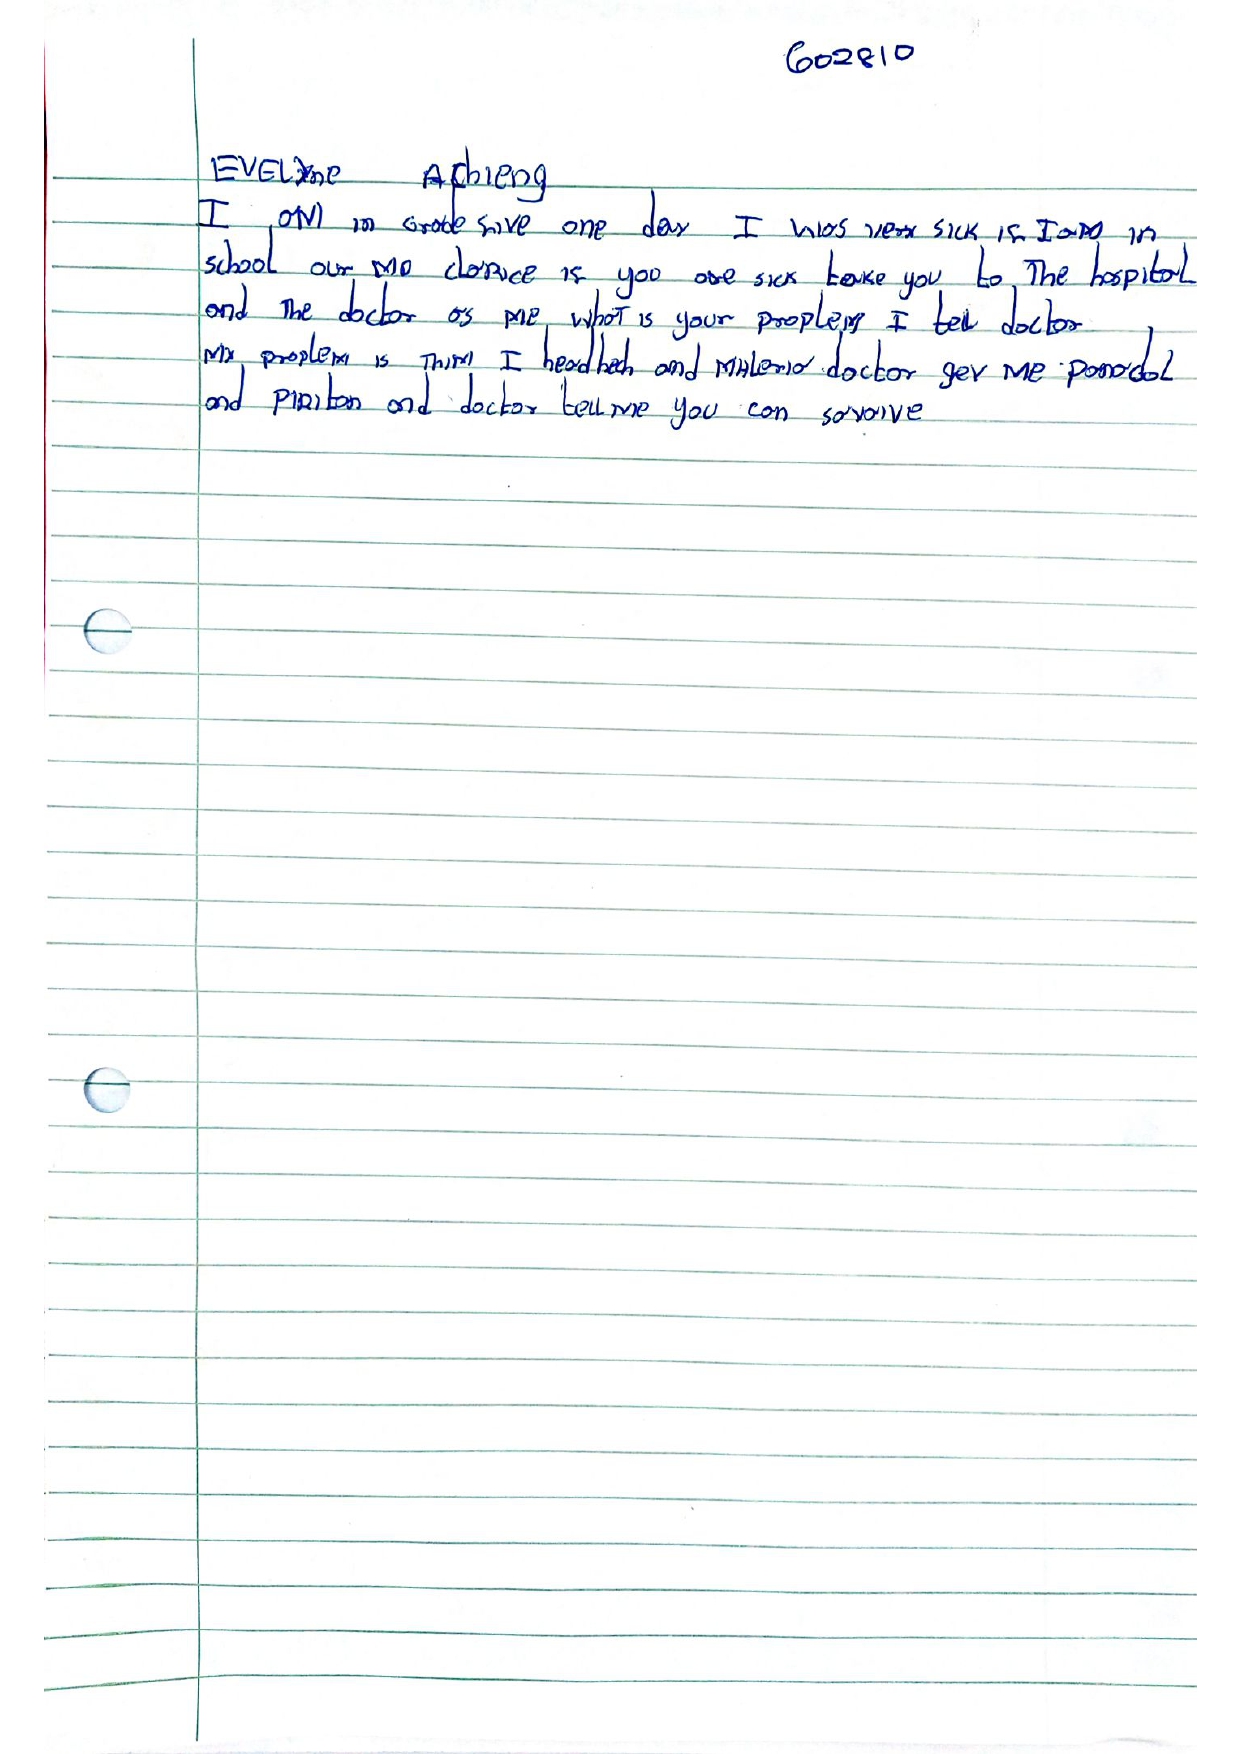 602810
EVELyne Achieng
I am in Grade five one day I was very sick if I am in
school our MD clarice if you are sick take you to The hospital
and The doctor as me what is your proplem I tell doctor
My proplem is Thim I headhech and MHleria doctor gev me panadol
and PIRiton and doctor tell me you can savaive